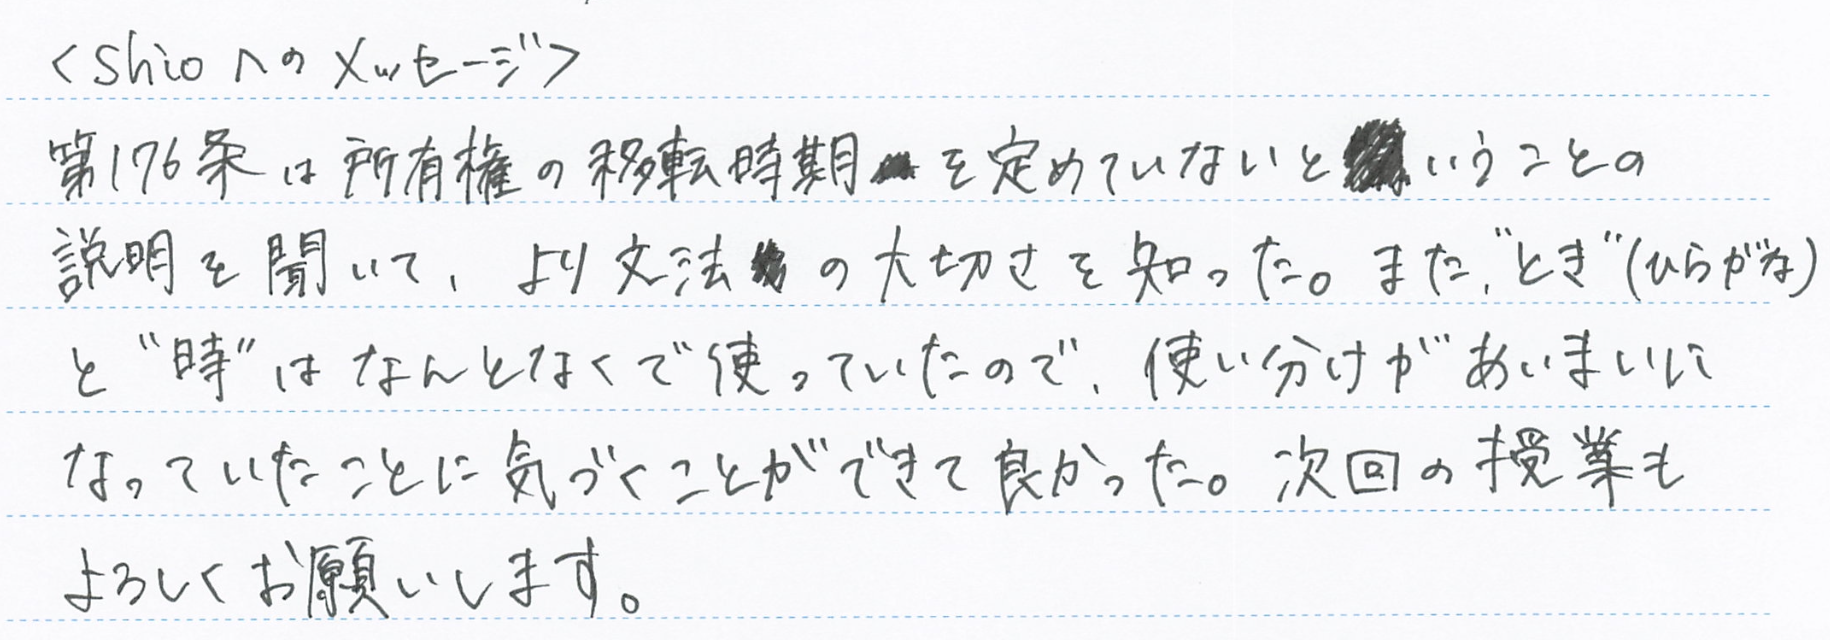 <shioへのメッセージ>
第176条は所有権の移転時期を定めていないということの
説明を聞いて、より文法の大切さを知った。また、"とき"(ひらがな)
と"時"はなんとなくで使っていたので、使い分けがあいまいに
なっていたことに気づくことができて良かった。次回の授業も
よろしくお願いします。